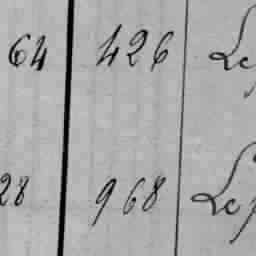 64 426 Le
28 968 Le